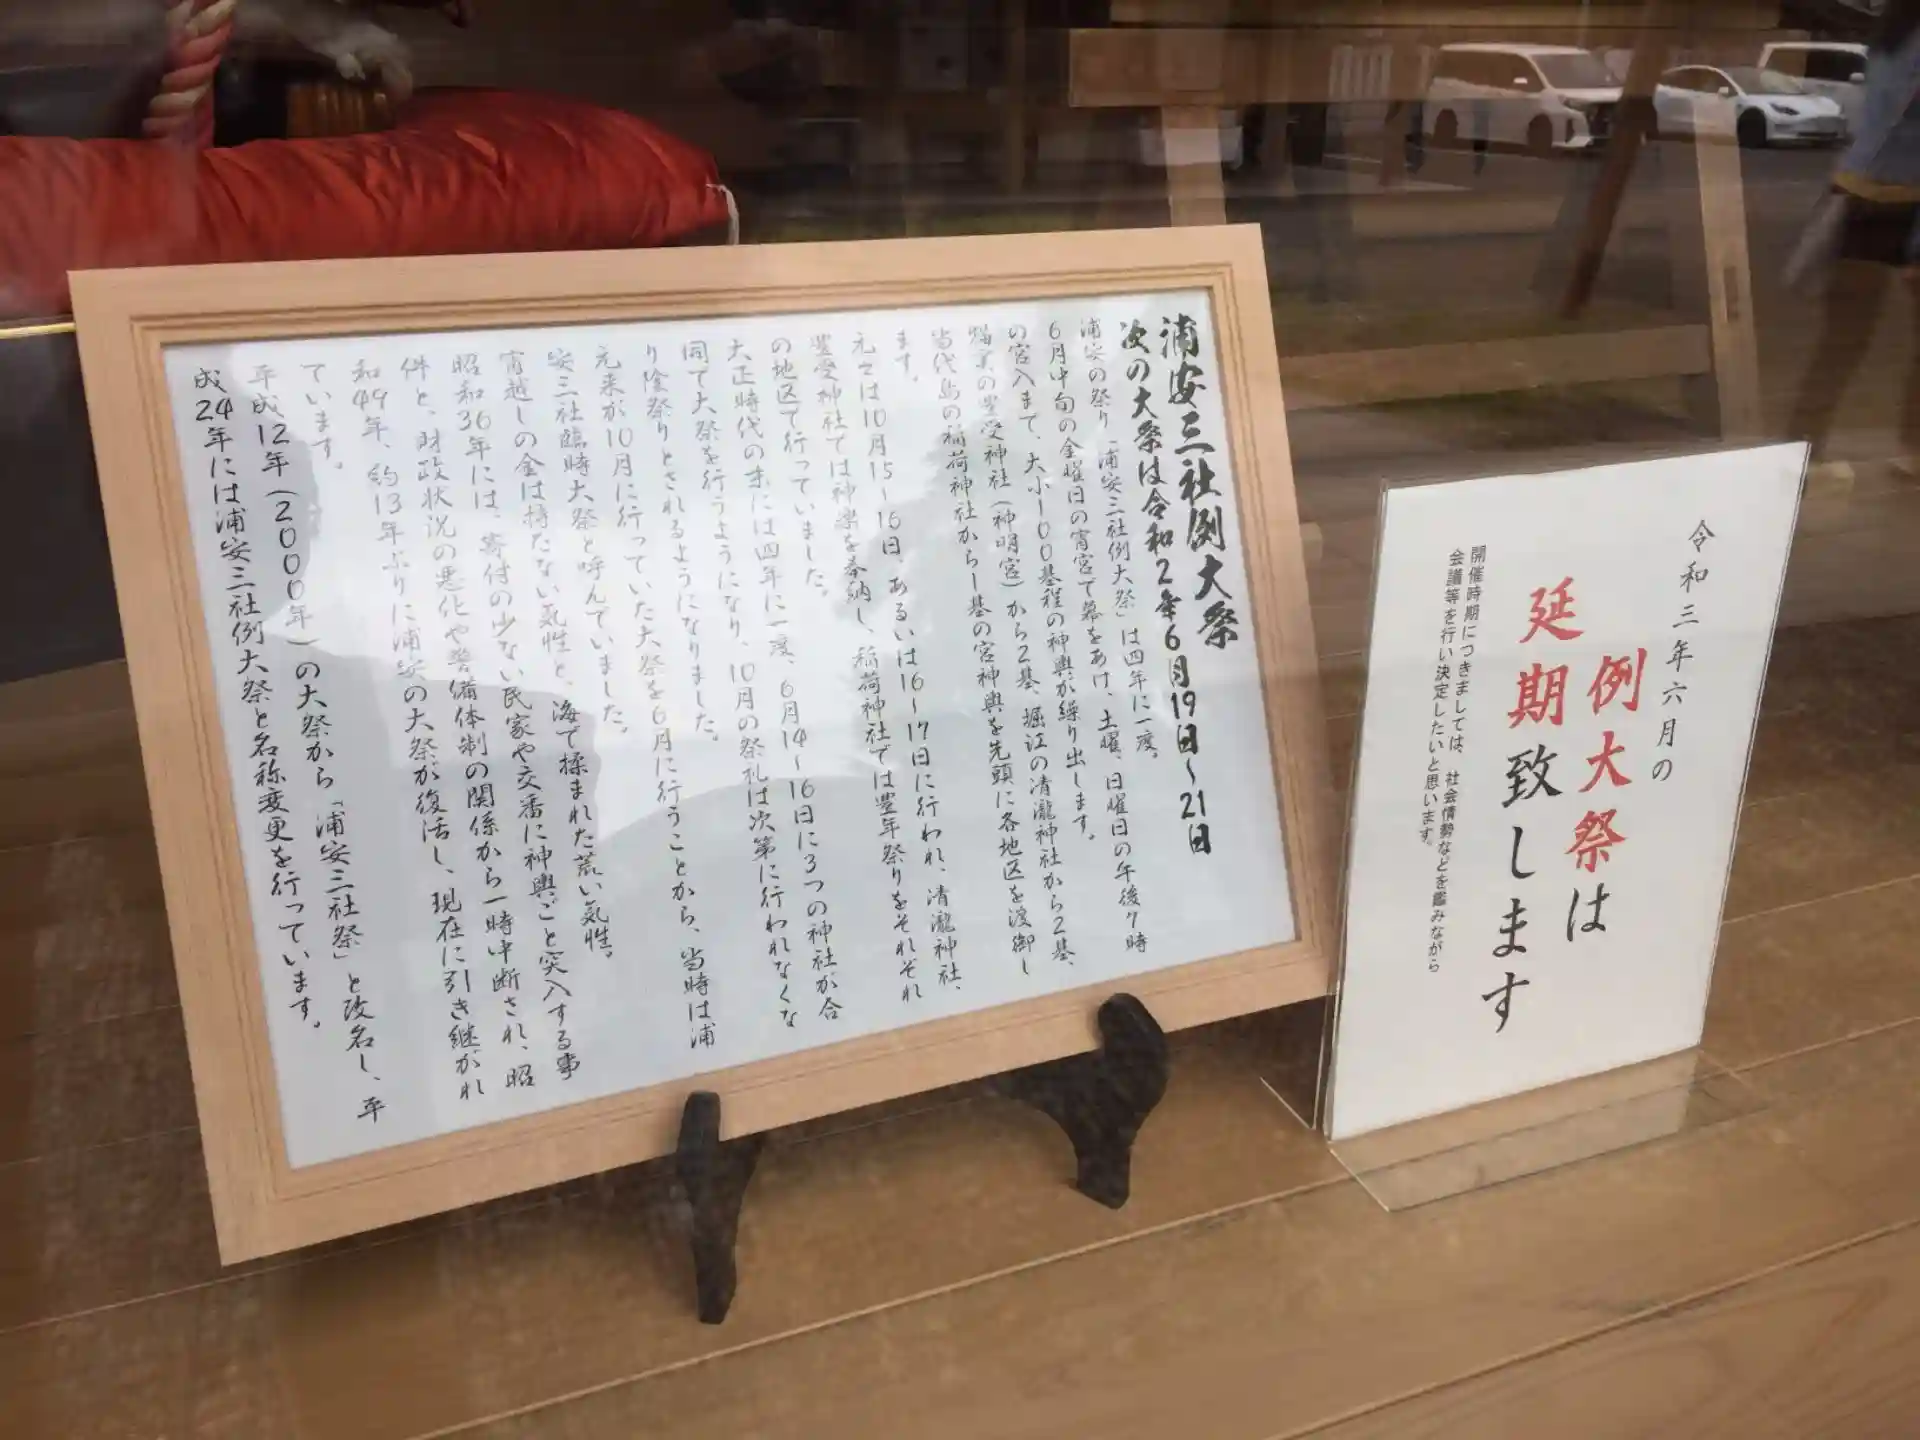 浦安三社例大祭
次の大祭は令和2年6月19日~21日
浦安の祭り「浦安三社例大祭」は四年に一度。
6月中旬の金曜日の宵宮で幕をあけ、土曜、日曜日の午後7時
の宮入まで、大小100基程の神輿が繰り出します。
猫実の豊受神社(神明宮)から2基、堀江の清瀧神社から2基、
当代島の稲荷神社から1基の宮神輿を先頭に各地区を渡御し
ます。
元々は10月15~16日、あるいは16~17日に行われ、清瀧神社、
豊受神社では神楽を奉納し、稲荷神社では豊年祭りをそれぞれ
の地区で行っていました。
大正時代の末には四年に一度、6月14~16日に3つの神社が合
同で大祭を行うようになり、10月の祭礼は次第に行われなくな
り陰祭りとされるようになりました。
元来が10月に行っていた大祭を6月に行うことから、当時は浦
安三社臨時大祭と呼んでいました。
宵越しの金は持たない気性と、海で揉まれた荒い気性。
昭和36年には、寄付の少ない民家や交番に神輿ごと突入する事
件と、財政状況の悪化や警備体制の関係から一時中断され、昭
和49年、約13年ぶりに浦安の大祭が復活し、現在に引き継がれ
ています。
平成12年(2000年)の大祭から「浦安三社祭」と改名し、平
成24年には浦安三社例大祭と名称変更を行っています。
令和三年六月の
例大祭は
延期致します
開催時期につきましては、社会情勢などを鑑みながら
会議等を行い決定したいと思います。